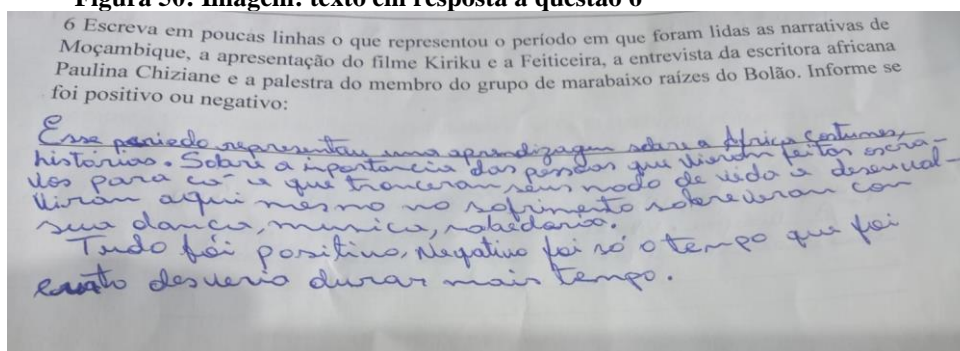 Figura 30: Imagem: texto em resposta à questão 6
6 Escreva em poucas linhas o que representou o período em que foram lidas as narrativas de
Moçambique, a apresentação do filme Kiriku e a Feiticeira, a entrevista da escritora africana
Paulina Chiziane e a palestra do membro do grupo de marabaixo raízes do Bolão. Informe se
foi positivo ou negativo:
Esse periodo representou uma aprendizagem sobre a Africa, Costumes,
histórias. Sobre a inportancia das pessoas que vieram feitos escra-
vos para cá e que trouceram seus modo de vida e desenvol-
viram aqui mesmo no sofrimento sobreviveram con
sua dança, musica, sabedoria.
Tudo foi positivo, Negativo foi só o tempo que foi
desveria durar mais tempo.